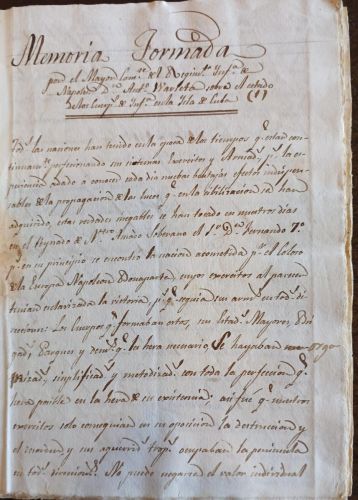 Memoria Formada
por el Mayor Com.te del Regim.to Inf.a de
Napoles d.n Ant.o sobre el estado
de los Cuerp.s de Inf.a en la Isla de Cuba
Tod.s las naciones han tenido en la epoca de los tiempos q.e estad con
perfeccionando sus sistemas Exercitos y Armad.s p.r la es
periencia adado a conocer cada dia nuebas bentajas efectos indispen
sables de la propagacion de las luces q.e en la sibilizacion se han
adquirido, estas verdades inegables se han tocado en nuestros dias
en el Reynado de N.tro Amado Soberano el S.or D.n Fernando 7.o
p.s en su principio se encontró la nacion acometida p.r el Coloso
de la Europa Napoleon Bonaparte cuyos exercitos al parecer
tenian esclavizada la victoria, p.s q.e seguia sus arm.s en tod.s di
recciones: Los Cuerpos q.e formaban estos, sus Estad.s Mayores, Brig
ad.s Parques y dem.s q.e les hera necesario, se hayaban orga
nizad.s, simplificad.s y metodizad.s con toda la perfeccion q.e
hera posible en la hera de su existencia: asi fue q.e nuestros
exercitos solo conseguian en su oposicion la destruccion y
el y sus aguerrid.s trop.s ocupaban la peninsula
en tod.s direccion.s No puede negarse el valor individual